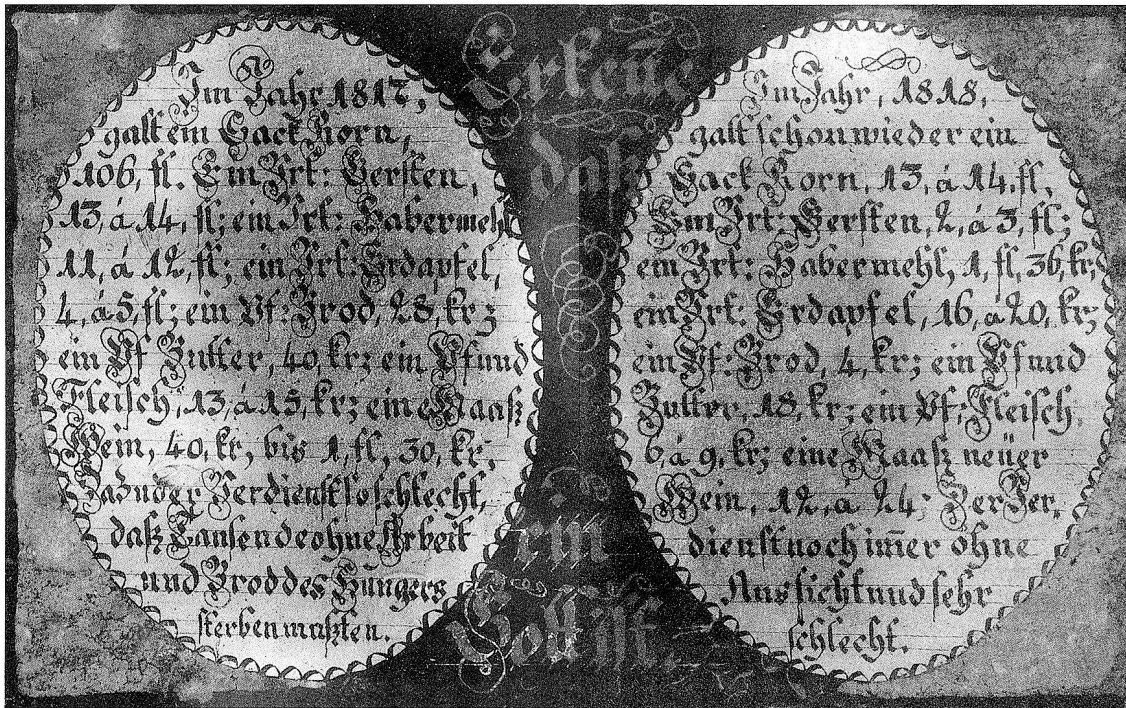 Im Jahr 1817,
galt ein Sack Korn,
106, fl. Ein Vrt: Gersten,
13, á 14, fl; ein Vrt: Habermehl
11, á 12, fl; ein Vrt: Erdapfel,
4, á 5, fl; ein Pf: Brod, 28, kr;
ein Pf Butter, 40, kr; ein Pfund
Fleisch, 13, á 15, kr; eine Maaß
Wein, 40, kr, bis 1, fl, 30, kr,
der Verdienst so schlecht,
daß Tausende ohne Arbeit
und Brod des Hungers
sterben mußten.
Erkeñe
daß
ein
Gott ist.
Im Jahr, 1818,
galt schon wieder ein
Sack Korn, 13, á 14, fl,
Ein Vrt: Gersten, 2, á 3, fl;
ein Vrt: Habermehl, 1, fl, 36, kr,
ein Vrt: Erdapfel, 16, á 20, kr;
ein Pf: Brod, 4, kr; ein Pfund
Butter, 18, kr; ein Pf: Fleisch,
6, á 9, kr; eine Maaß neüer
Wein, 12, á 24; Der Ver,
dienst noch im̃er ohne
Aussicht und sehr
schlecht.